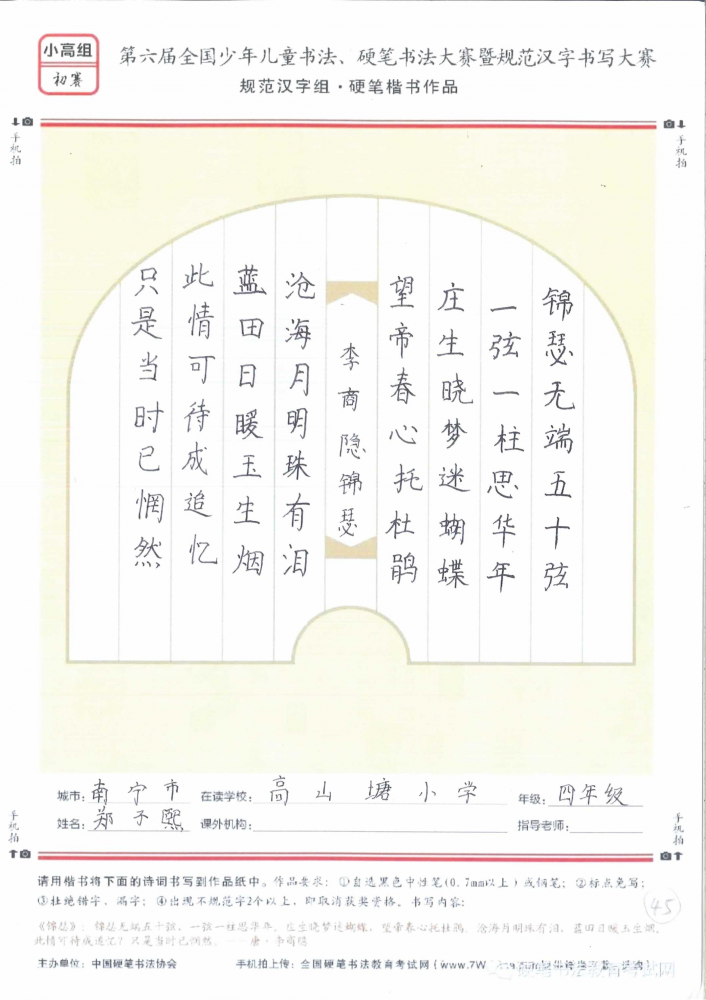 小高组
初赛
第六届全国少年儿童书法、硬笔书法大赛暨规范汉字书写大赛
规范汉字组·硬笔楷书作品
手机拍
手机拍
锦瑟无端五十弦
一弦一柱思华年
庄生晓梦迷蝴蝶
望帝春心托杜鹃
李商隐锦瑟
沧海月明珠有泪
蓝田日暖玉生烟
此情可待成追忆
只是当时已惘然
城市：南宁市 在读学校：高山塘小学 年级：四年级
姓名：郑子熙 课外机构： 指导老师：
手机拍
手机拍
请用楷书将下面的诗词书写到作品纸中。作品要求：①自选黑色中性笔(0.7mm以上)或钢笔；②标点免写；
③杜绝错字、漏字；④出现不规范字2个以上，即取消获奖资格。书写内容：
45
《锦瑟》：锦瑟无端五十弦，一弦一柱思华年。庄生晓梦迷蝴蝶，望帝春心托杜鹃。沧海月明珠有泪，蓝田日暖玉生烟。
此情可待成追忆？只是当时已惘然。——唐·李商隐
主办单位：中国硬笔书法协会 手机拍上传：全国硬笔书法教育考试网(www.7W
硬笔书法教育考试网